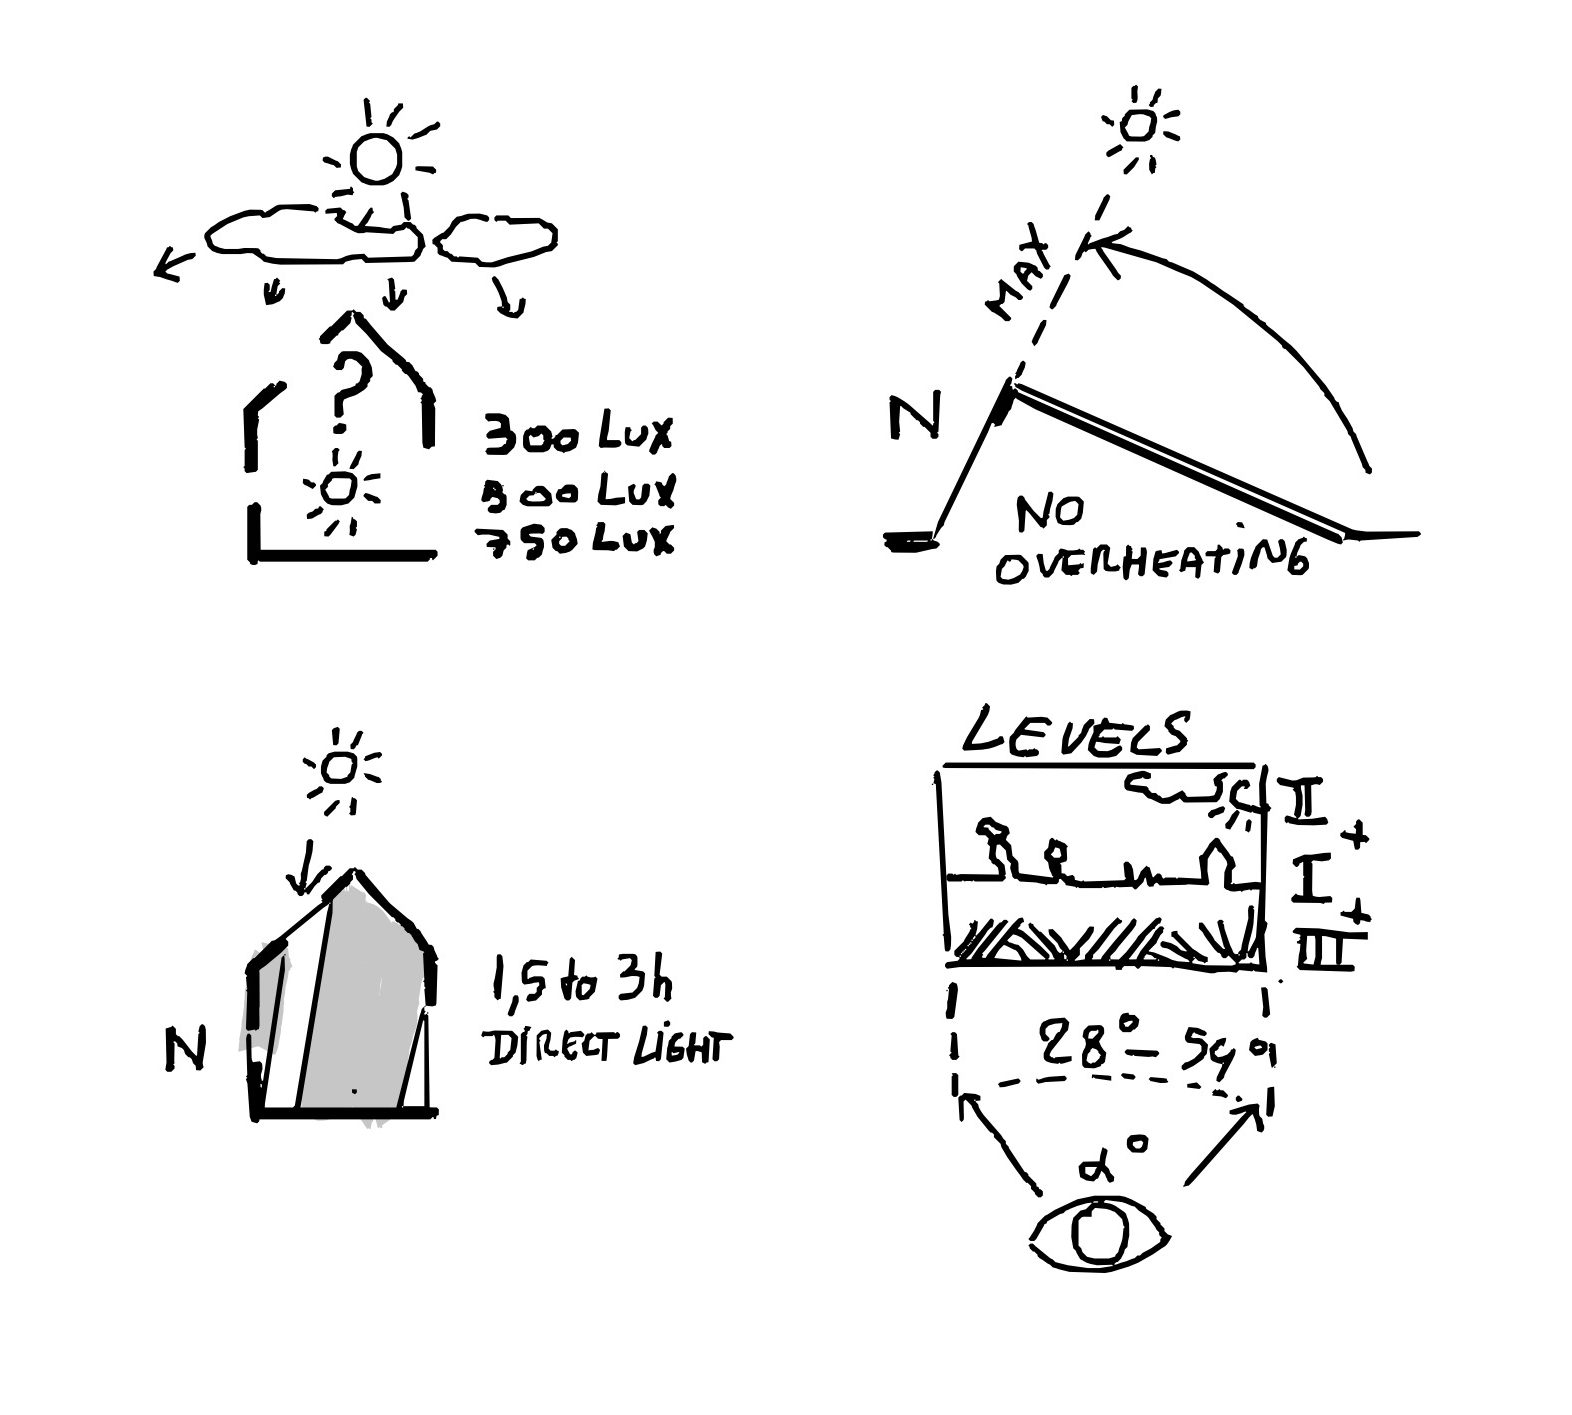 ?
300 LUX
500 LUX
750 LUX
MAX
N
NO
OVERHEATiNG
N
1,5 to 3h
DiRECT LiGHT
LEVELS
II
+
I
+
III
28° - 54°
α°